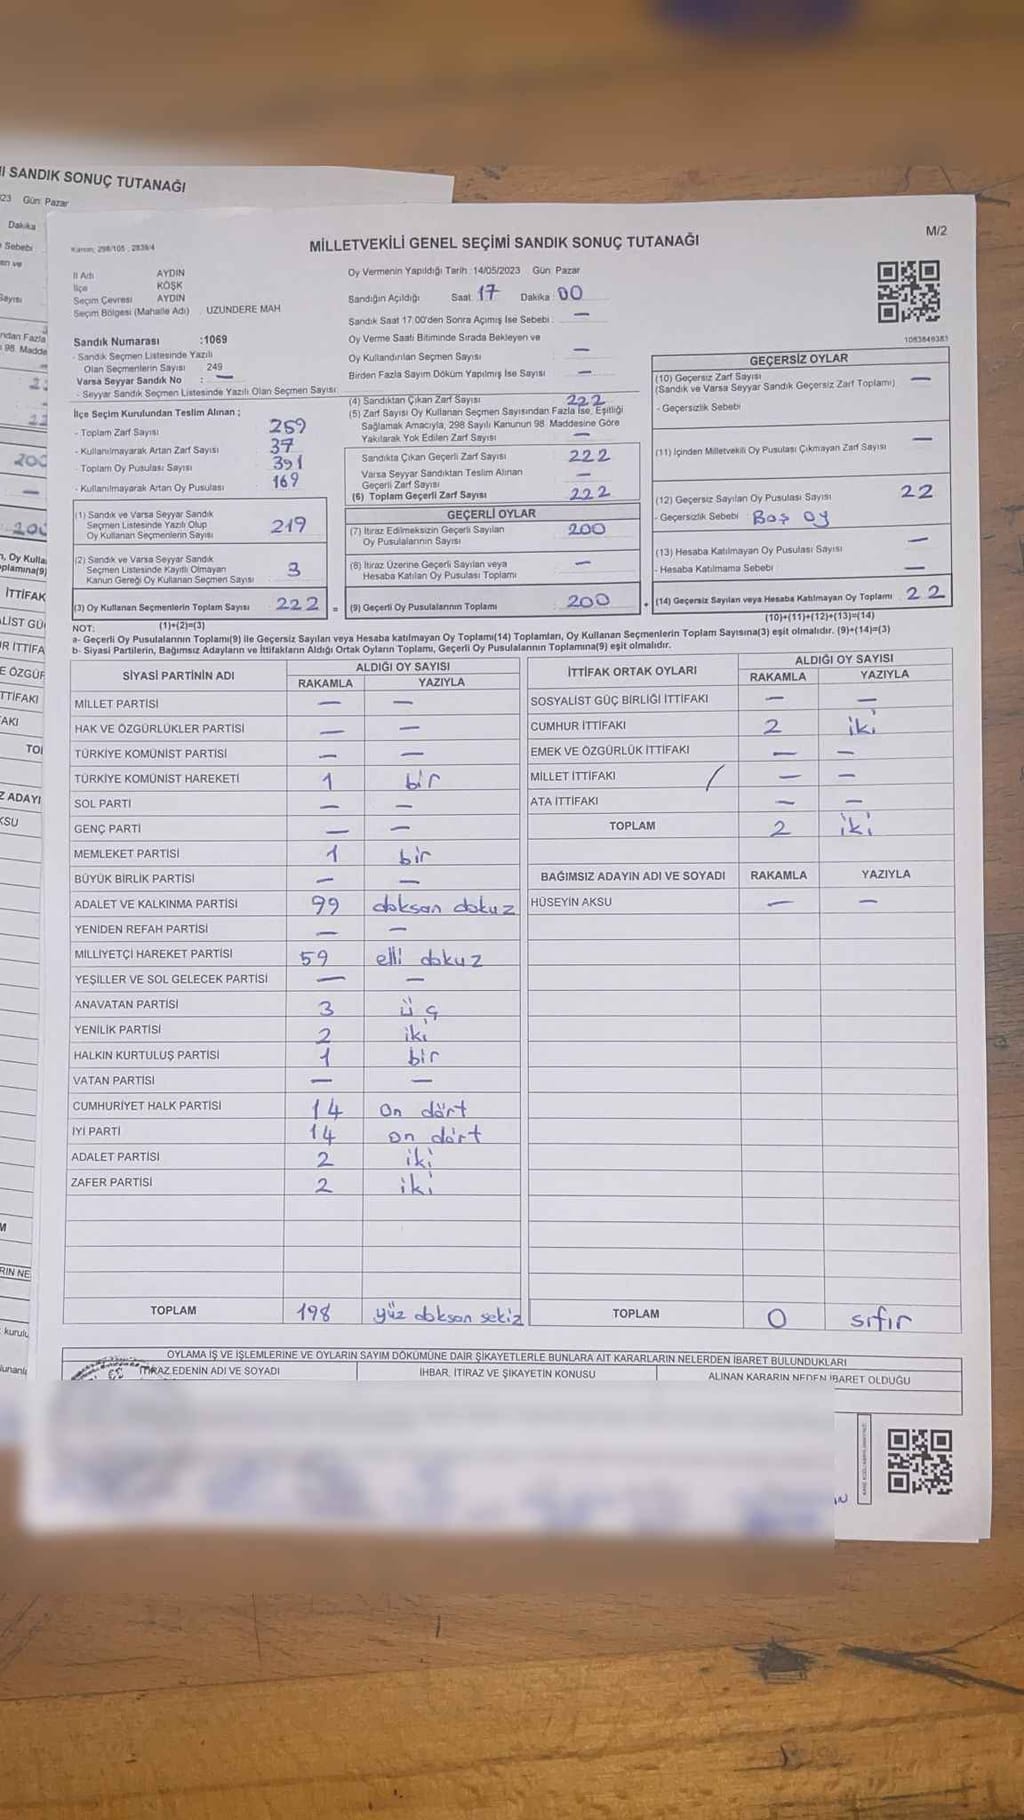 I SANDIK SONUÇ TUTANAĞI
023 Gün: Pazar
Dakika
Sebebi
Sayısı
ndan Fazla
98. Madde
200
200
İTTİFAK
TTİFAKI
AKI
Z ADAYI
KSU
M/2
Kanun: 298/105 , 2839/4
MİLLETVEKİLİ GENEL SEÇİMİ SANDIK SONUÇ TUTANAĞI
İl Adı AYDIN
İlçe KÖŞK
Seçim Çevresi AYDIN
Seçim Bölgesi (Mahalle Adı) : UZUNDERE MAH
Oy Vermenin Yapıldığı Tarih :14/05/2023 Gün: Pazar
Sandığın Açıldığı Saat: 17 Dakika : 00
Sandık Saat 17.00'den Sonra Açılmış İse Sebebi : —
Oy Verme Saati Bitiminde Sırada Bekleyen ve
Oy Kullandırılan Seçmen Sayısı —
Birden Fazla Sayım Döküm Yapılmış İse Sayısı —
1083848383
Sandık Numarası :1069
- Sandık Seçmen Listesinde Yazılı
Olan Seçmenlerin Sayısı 249
Varsa Seyyar Sandık No : —
- Seyyar Sandık Seçmen Listesinde Yazılı Olan Seçmen Sayısı:
İlçe Seçim Kurulundan Teslim Alınan ;
- Toplam Zarf Sayısı 259
- Kullanılmayarak Artan Zarf Sayısı 37
- Toplam Oy Pusulası Sayısı 391
- Kullanılmayarak Artan Oy Pusulası 169
(1) Sandık ve Varsa Seyyar Sandık
Seçmen Listesinde Yazılı Olup
Oy Kullanan Seçmenlerin Sayısı 219
(2) Sandık ve Varsa Seyyar Sandık
Seçmen Listesinde Kayıtlı Olmayan
Kanun Gereği Oy Kullanan Seçmen Sayısı 3
(3) Oy Kullanan Seçmenlerin Toplam Sayısı 222 =
(4) Sandıktan Çıkan Zarf Sayısı 222
(5) Zarf Sayısı Oy Kullanan Seçmen Sayısından Fazla İse, Eşitliği
Sağlamak Amacıyla, 298 Sayılı Kanunun 98. Maddesine Göre
Yakılarak Yok Edilen Zarf Sayısı —
Sandıkta Çıkan Geçerli Zarf Sayısı 222
Varsa Seyyar Sandıktan Teslim Alınan
Geçerli Zarf Sayısı —
(6) Toplam Geçerli Zarf Sayısı 222
GEÇERLİ OYLAR
(7) İtiraz Edilmeksizin Geçerli Sayılan
Oy Pusulalarının Sayısı 200
(8) İtiraz Üzerine Geçerli Sayılan veya
Hesaba Katılan Oy Pusulası Toplamı —
(9) Geçerli Oy Pusulalarının Toplamı 200 +
GEÇERSİZ OYLAR
(10) Geçersiz Zarf Sayısı —
(Sandık ve Varsa Seyyar Sandık Geçersiz Zarf Toplamı)
- Geçersizlik Sebebi
(11) İçinden Milletvekili Oy Pusulası Çıkmayan Zarf Sayısı —
(12) Geçersiz Sayılan Oy Pusulası Sayısı 22
- Geçersizlik Sebebi : Boş oy
(13) Hesaba Katılmayan Oy Pusulası Sayısı —
- Hesaba Katılmama Sebebi : —
(14) Geçersiz Sayılan veya Hesaba Katılmayan Oy Toplamı 22
NOT: (1)+(2)=(3) (10)+(11)+(12)+(13)=(14)
a- Geçerli Oy Pusulalarının Toplamı(9) ile Geçersiz Sayılan veya Hesaba katılmayan Oy Toplamı(14) Toplamları, Oy Kullanan Seçmenlerin Toplam Sayısına(3) eşit olmalıdır. (9)+(14)=(3)
b- Siyasi Partilerin, Bağımsız Adayların ve İttifakların Aldığı Ortak Oyların Toplamı, Geçerli Oy Pusulalarının Toplamına(9) eşit olmalıdır.
SİYASİ PARTİNİN ADI ALDIĞI OY SAYISI
RAKAMLA YAZIYLA
MİLLET PARTİSİ — —
HAK VE ÖZGÜRLÜKLER PARTİSİ — —
TÜRKİYE KOMÜNİST PARTİSİ — —
TÜRKİYE KOMÜNİST HAREKETİ 1 bir
SOL PARTİ — —
GENÇ PARTİ — —
MEMLEKET PARTİSİ 1 bir
BÜYÜK BİRLİK PARTİSİ — —
ADALET VE KALKINMA PARTİSİ 99 doksan dokuz
YENİDEN REFAH PARTİSİ — —
MİLLİYETÇİ HAREKET PARTİSİ 59 elli dokuz
YEŞİLLER VE SOL GELECEK PARTİSİ — —
ANAVATAN PARTİSİ 3 üç
YENİLİK PARTİSİ 2 iki
HALKIN KURTULUŞ PARTİSİ 1 bir
VATAN PARTİSİ — —
CUMHURİYET HALK PARTİSİ 14 on dört
İYİ PARTİ 14 on dört
ADALET PARTİSİ 2 iki
ZAFER PARTİSİ 2 iki
TOPLAM 198 yüz doksan sekiz
İTTİFAK ORTAK OYLARI ALDIĞI OY SAYISI
RAKAMLA YAZIYLA
SOSYALİST GÜÇ BİRLİĞİ İTTİFAKI — —
CUMHUR İTTİFAKI 2 iki
EMEK VE ÖZGÜRLÜK İTTİFAKI — —
MİLLET İTTİFAKI / — —
ATA İTTİFAKI — —
TOPLAM 2 iki
BAĞIMSIZ ADAYIN ADI VE SOYADI RAKAMLA YAZIYLA
HÜSEYİN AKSU — —
TOPLAM 0 sıfır
OYLAMA İŞ VE İŞLEMLERİNE VE OYLARIN SAYIM DÖKÜMÜNE DAİR ŞİKAYETLERLE BUNLARA AİT KARARLARIN NELERDEN İBARET BULUNDUKLARI
İTİRAZ EDENİN ADI VE SOYADI İHBAR, İTİRAZ VE ŞİKAYETİN KONUSU ALINAN KARARIN NEDEN İBARET OLDUĞU